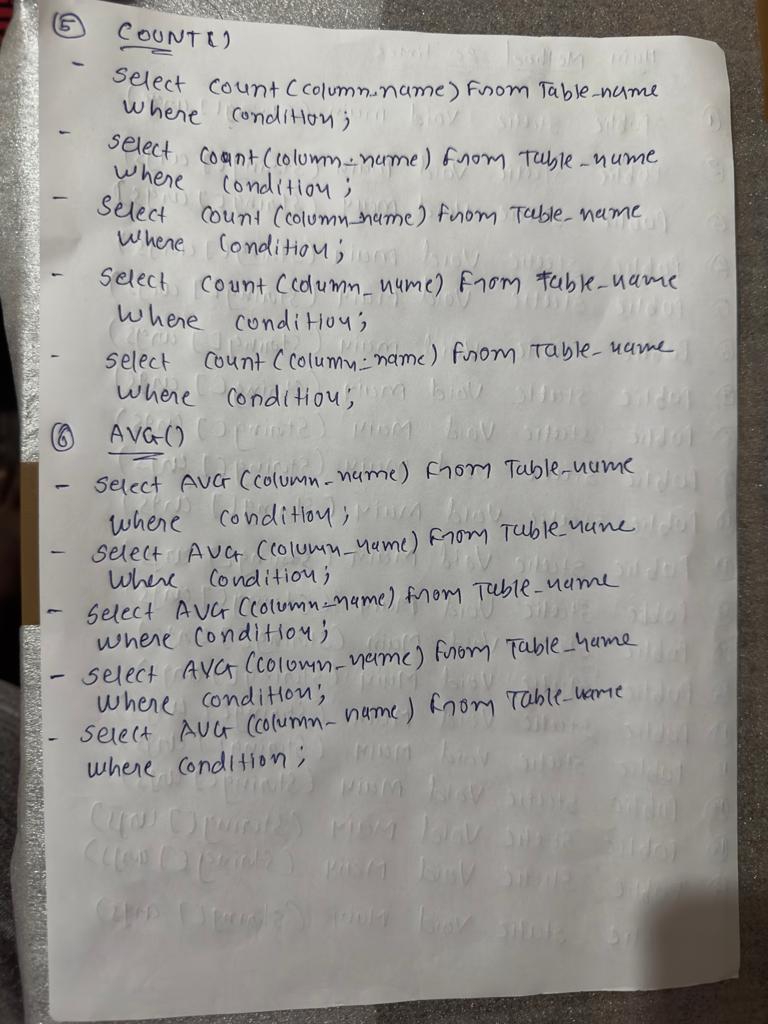 ⑤ COUNT()
- Select count (column_name) From Table_name
where condition;
- select count (column_name) from Table_name
where condition;
- Select count (column_name) from Table_name
where condition;
- Select count (column_name) From table_name
where condition;
- select count (column_name) from Table_name
where condition;
⑥ AVG()
- Select AVG (column_name) From Table_name
where condition;
- Select AVG (column_name) From Table_name
where condition;
- Select AVG (column_name) from Table_name
where condition;
- Select AVG (column_name) From Table_name
where condition;
- Select AVG (column_name) from Table_name
where condition;